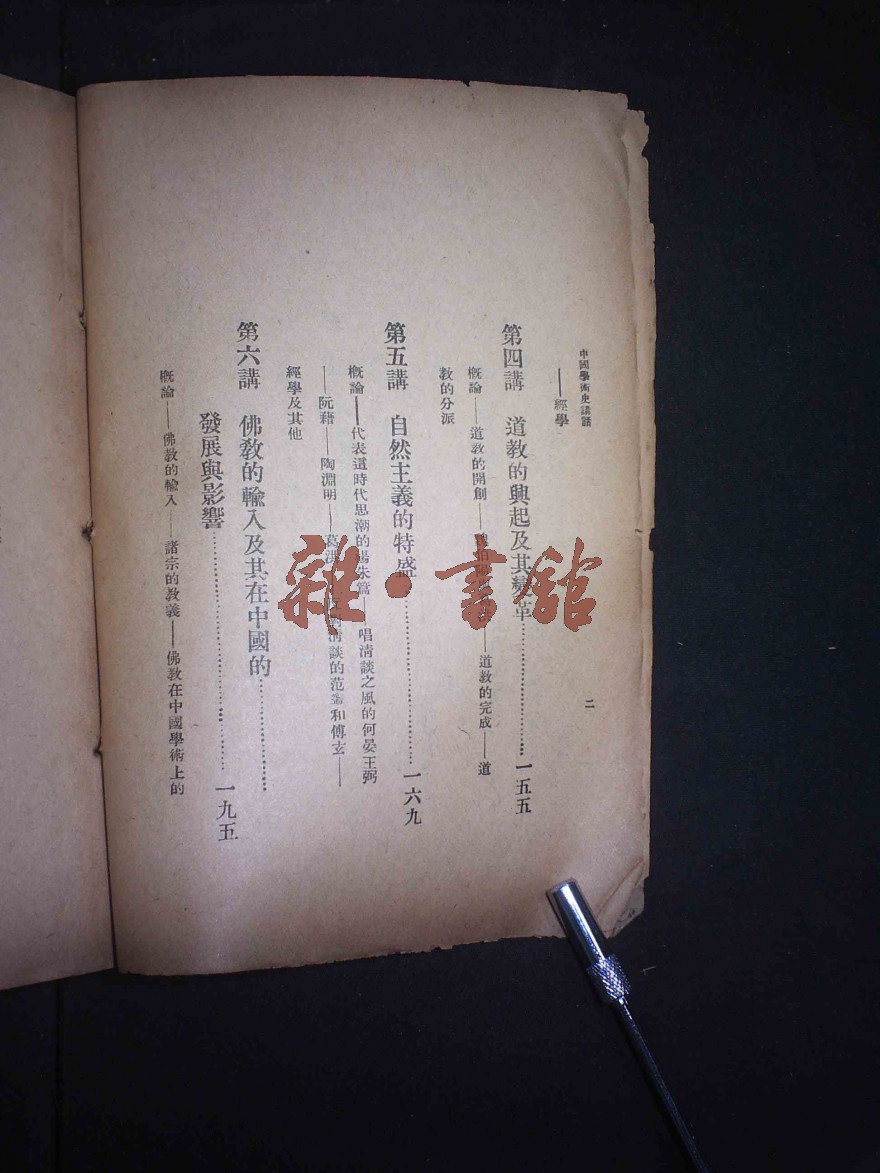 中國學術史講話
二
——經學
第四講 道教的興起及其變革……………一五五
概論——道教的開創——魏伯陽——道教的完成——道
教的分派
第五講 自然主義的特盛……………一六九
概論——代表這時代思潮的楊朱篇——唱清談之風的何晏王弼
——阮籍——陶淵明——葛洪——反對清談的范甯和傅玄——
經學及其他
第六講 佛教的輸入及其在中國的……………
發展與影響……………一九五
概論——佛教的輸入——諸宗的教義——佛教在中國學術上的
雜·書館